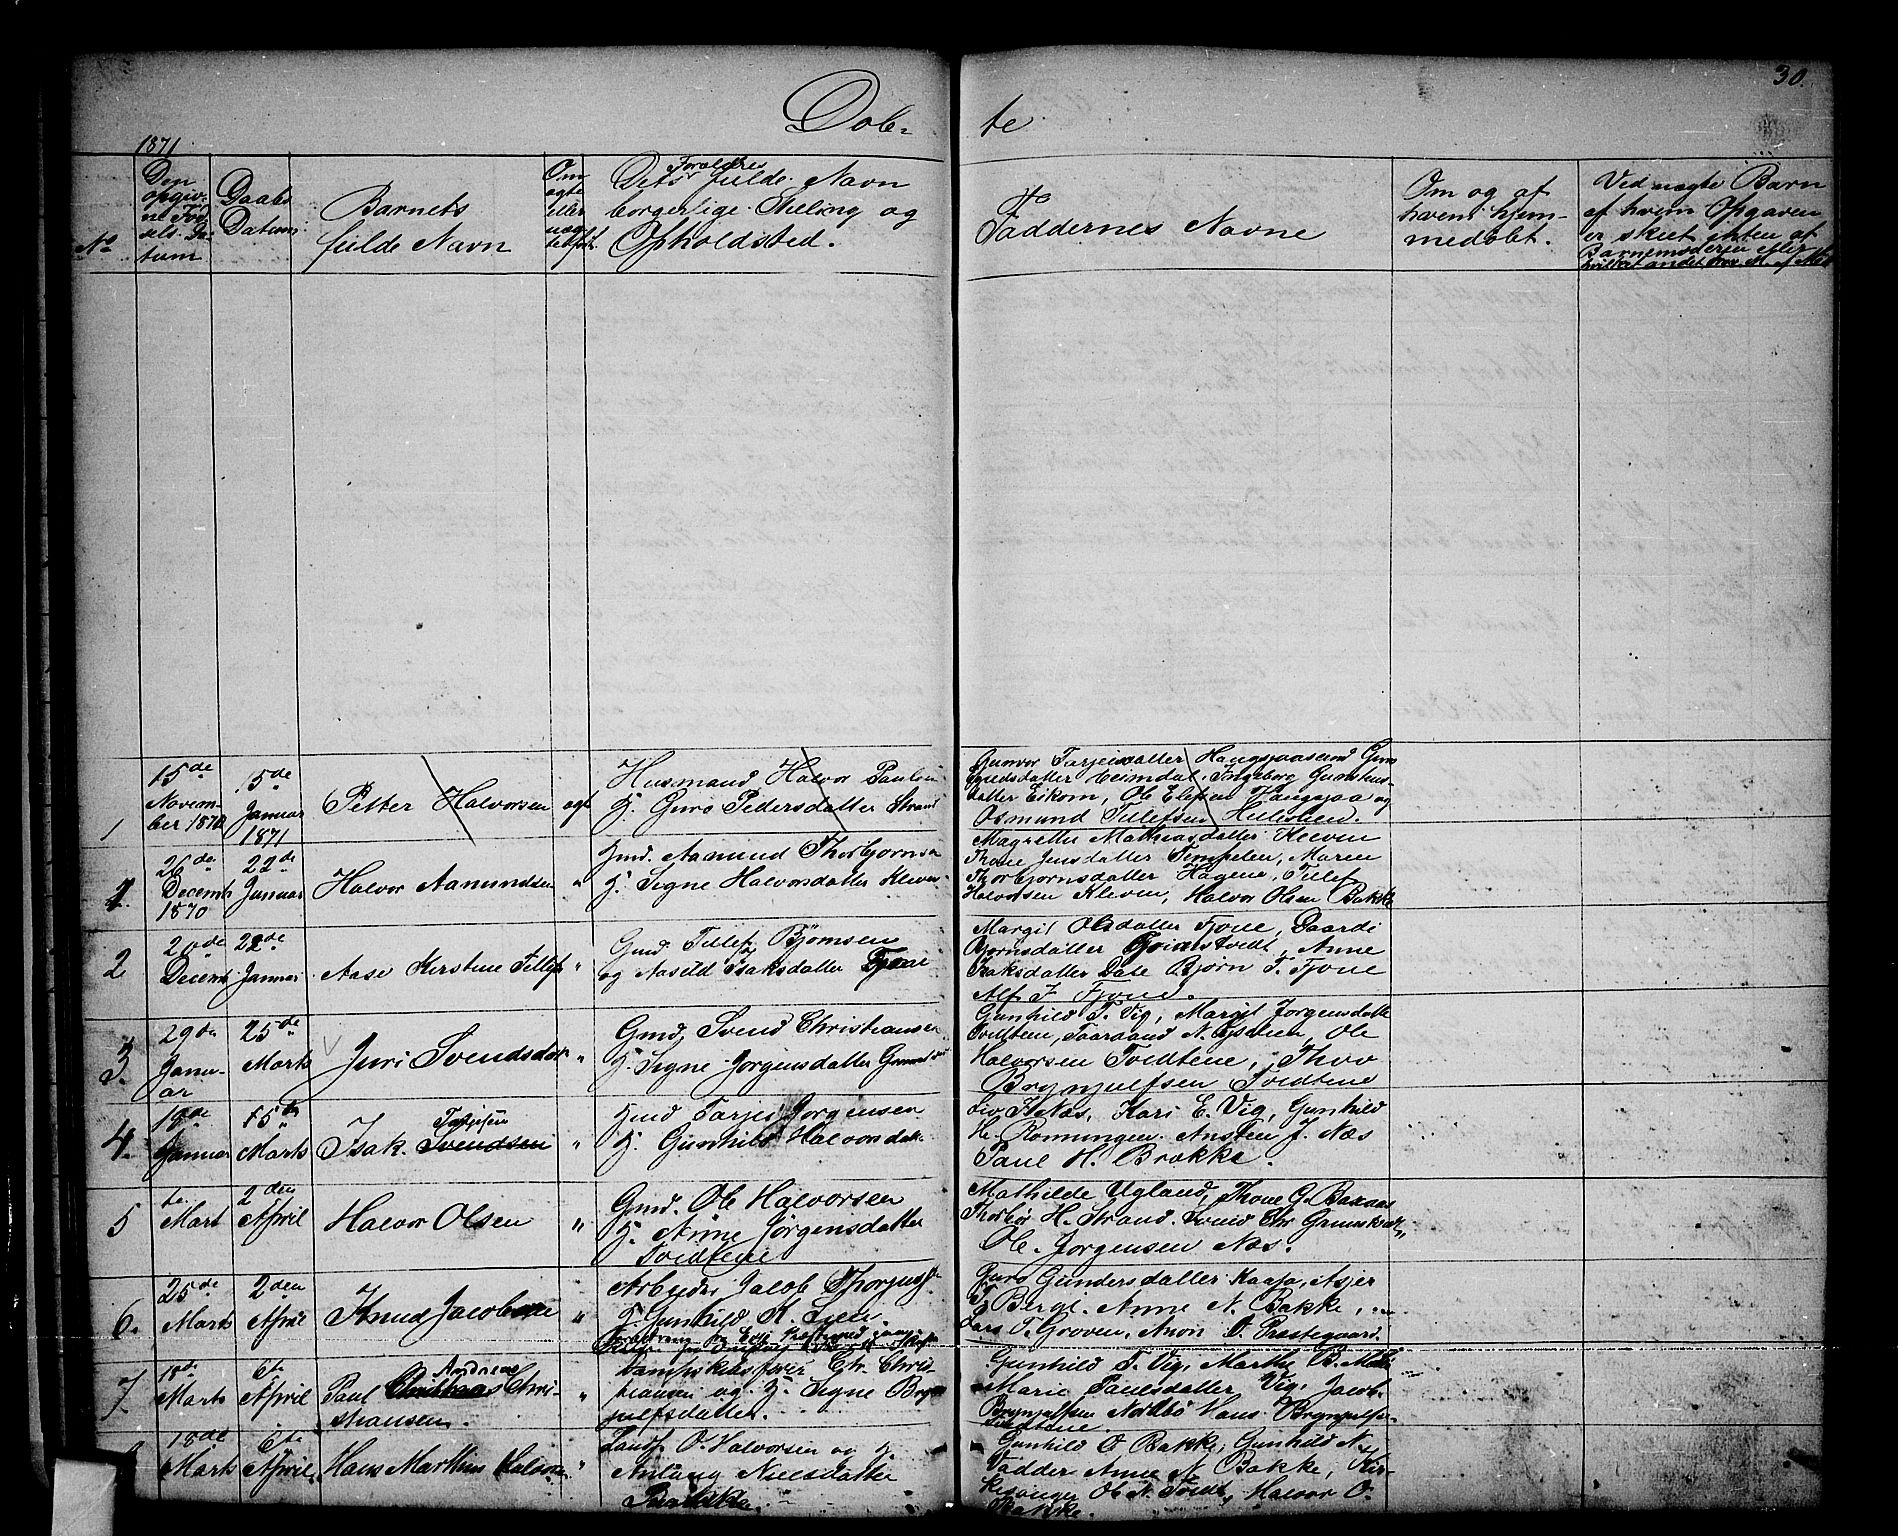 30.
Døb- te
1871
No
Den opgiv- ne Fød- sels Da- tum
Daabs Datum
Barnets fulde Navn
Om ægte eller uægte født
Dets Forældres fulde Navn borgerlige Stilling og Opholdsted.
Faddernes Navne
Om og af hvem hjem- medøbt.
Ved uægte Barn af hvem Opgaven er skeet enten af Barnemoderen eller hvilket andet
1
15de Novem- ber 1870
15de Januar 1871
Petter Halvorsen
ægt
Husmand Halvor Paulsen
H. Guro Pedersdatter Strand
Gunvor Tarjeisdatter Haugsjaasund Gun
datter Eikom, Ole Elefsen Haugsjaa og
Osmund Tellefsen
1
26de Decemb 1870
22de Januar
Halvor Aamundsen
"
Gmd. Aamund Thorbjørnsen
H. Signe Halvorsdatter Kleven
Magrethe Mathiasdatter Kleven
Thone Jensdatter Tempelen, Maren
Thorbjørnsdatter Hagene, Tellef
Halvorsen Kleven, Halvor Olsen Bakke
2
20de Decemb
22de Januar
Aase Kirstene Tellefs
"
Gmd. Tellef Bjørnsen
og Aasild Isaksdatter Fjone
Margit Olsdatter Fjone, Daardi
Bjørnsdatter Anne
Isaksdatter Dale Bjørn T. Fjone
Alf I Fjone.
3.
29de Janu- ar
25de Marts
Juri Svendsdat
"
Gmd. Svend Christiansen
H. Signe Jørgensdatter
Gunhild T. Vig, Margit Jørgensdatt
Tvidtene, Taaraand N. Ole
Halvorsen Tvedtene, Thov
Brynjulfsen Tvedtene
4.
18de Januar
15de Marts
Isak. Tarjeisen Svendsen
"
Gmd Tarjei Jørgensen
H. Gunhild Halvorsdatt
Liv J. Næs, Kari E. Vig, Gunhild
H. Romungen. Ansten J. Næs
Paul H. Brække.
5
te Mart
2den April
Halvor Olsen
"
Gmd. Ole Halvorsen
H. Anne Jørgensdatter
Tvidtene
Mathilde Ugland, Thone G.
Thorbør H. Strand. Svend Chr
Ole Jørgensen Næs.
6.
25de Marts
2den April
Knud Jacobsen
"
Arbeider Jacob Thorjus
H. Gunhild K. Lien.
Guro Gundersdatter Kaasa, Asjer
T. Berge. Anne N. Bakke,
Lars T. Groven, Anon O. Præstegaard.
7.
18de Marts
6te April
Paul Andreas Christiansen
"
Dampskibsfører Chr. Chris-
tiansen og H. Signe Bryn
julfsdatter.
Gunhild T. Vig, Marthe B.
Marie Paulsdatter Vig, Jacob
Brynjulfsen Nordbø Hans Brynjulfs
Tvedtene
18de Marts
6te April.
Hans Marthin Halvor
"
Landh. O. Halvorsen og H
Anlaug Nielsdatter
Gunhild O Bakke, Gunhild N.
Vadder Anne N Bakke, Kir-
kesanger Ole N. Tveidt, Halvor O.
Bakke.